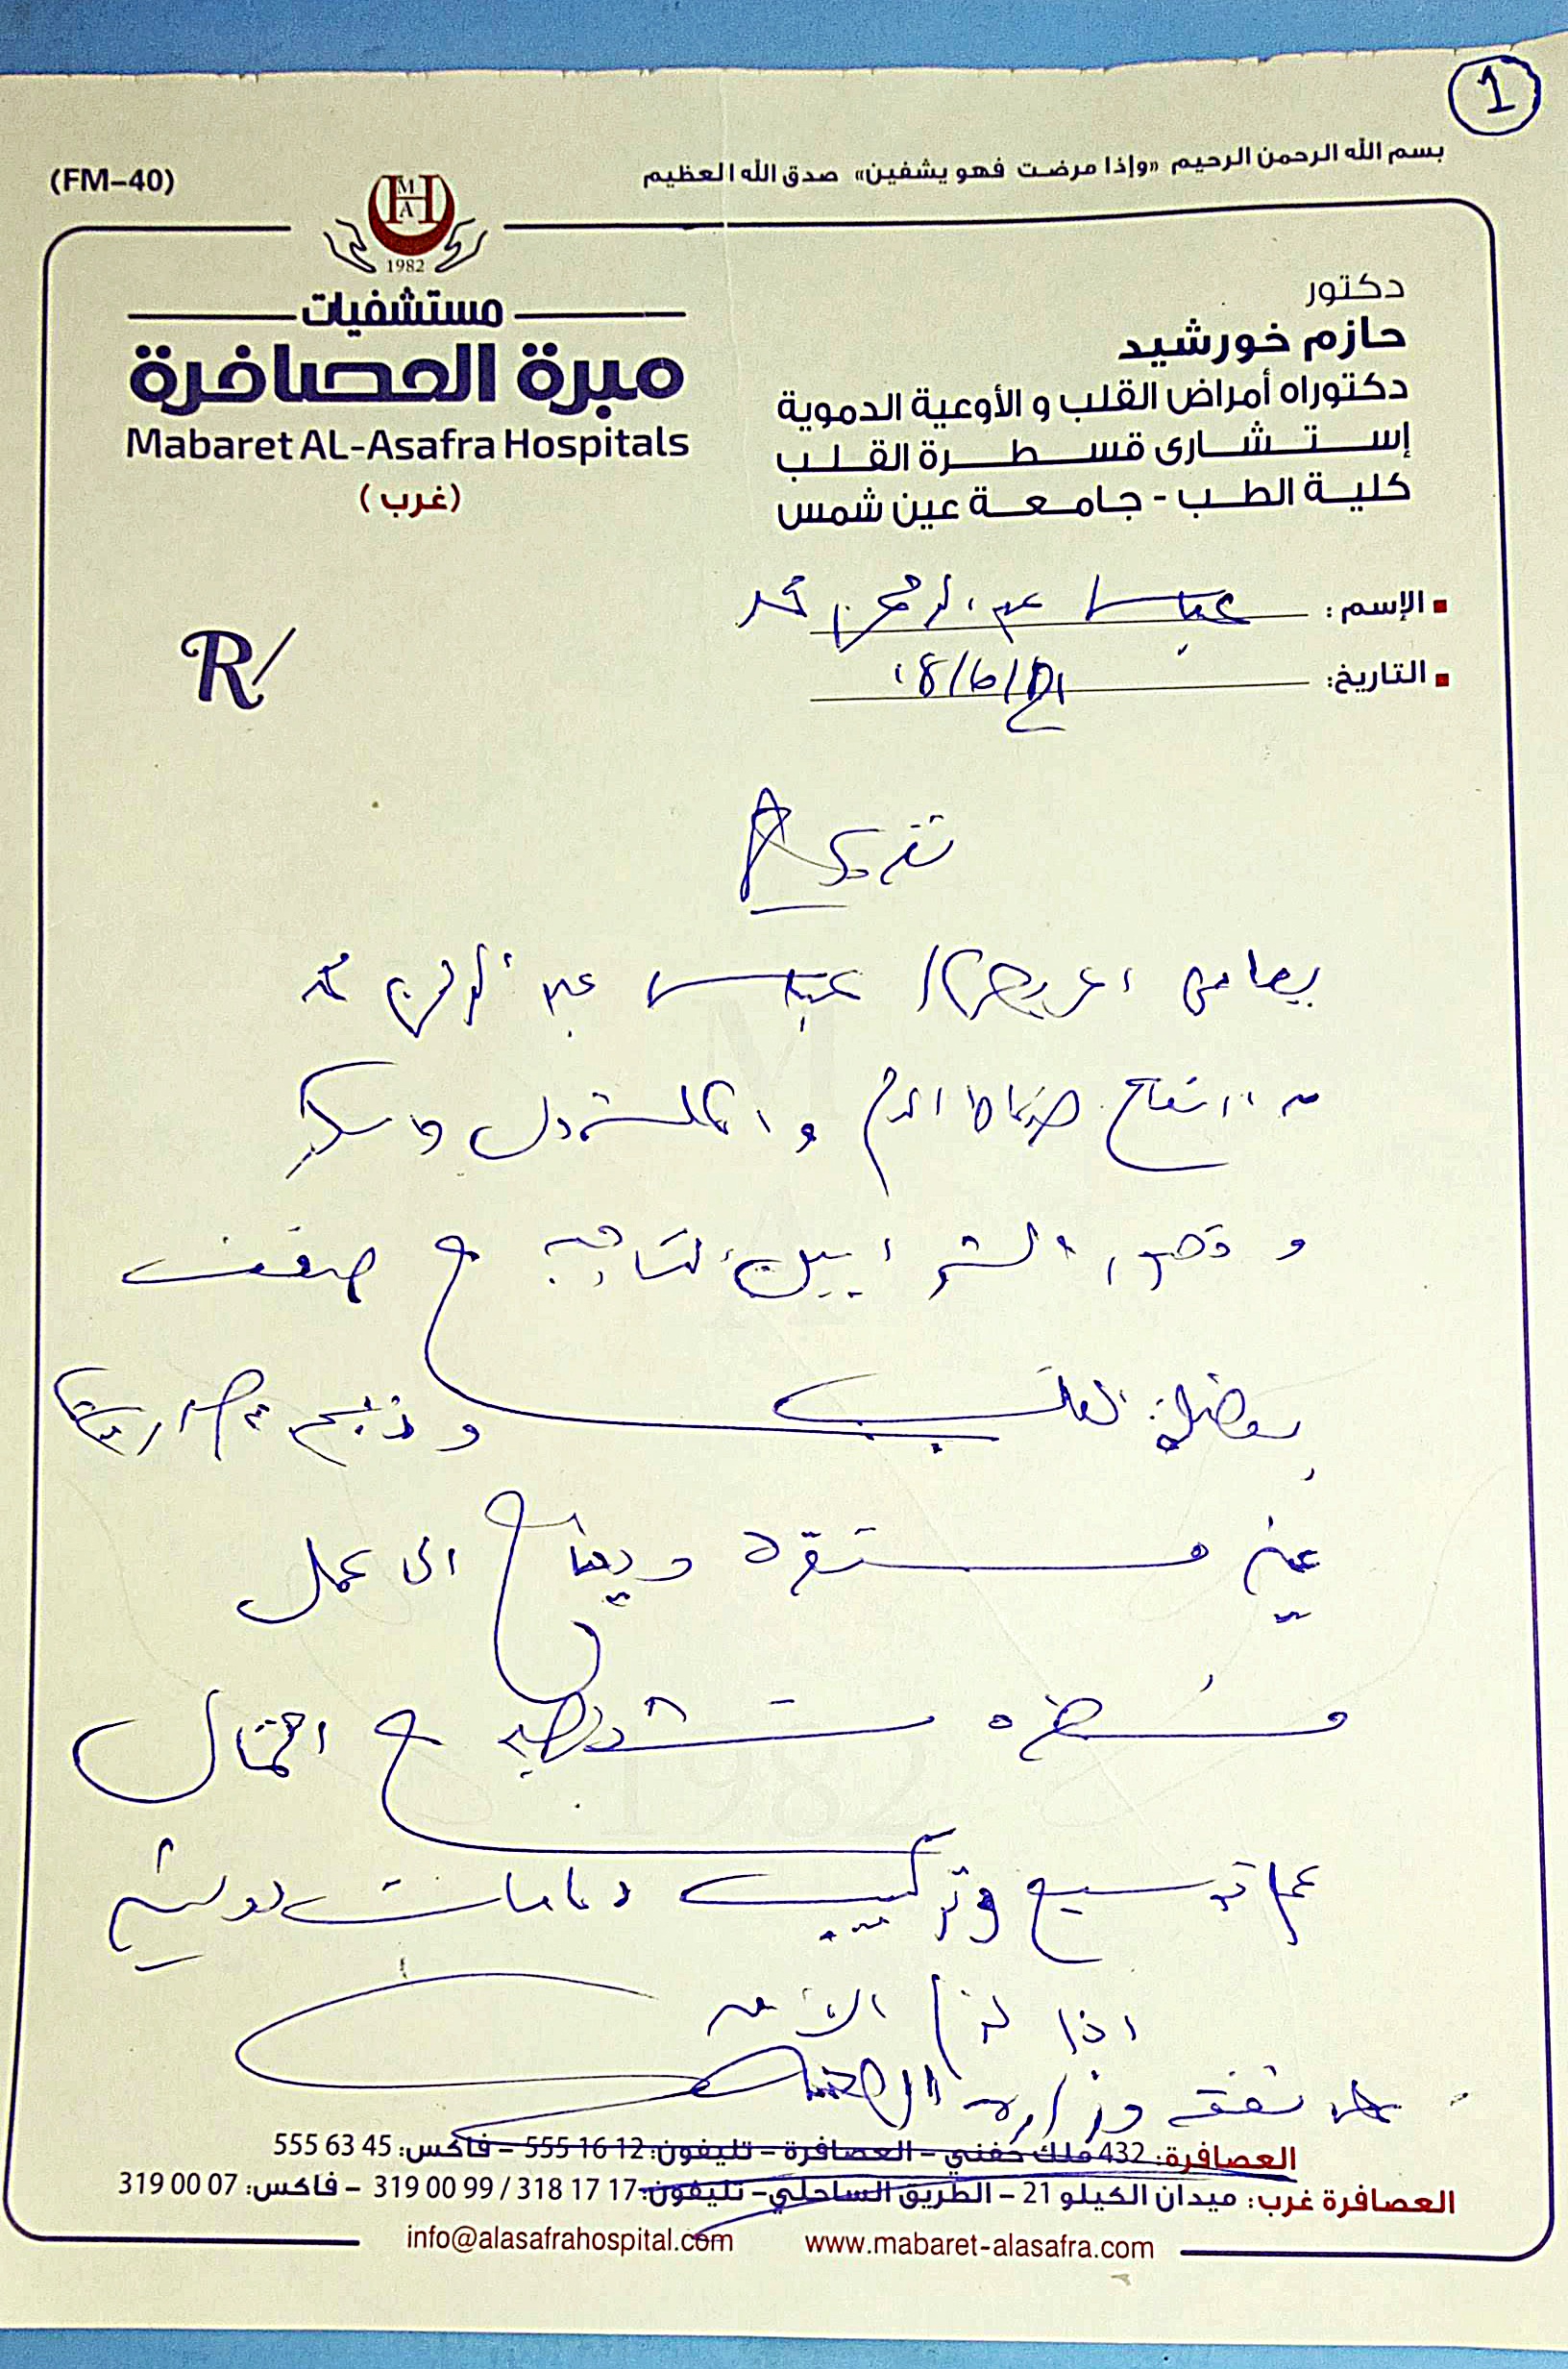 1
بسم الله الرحمن الرحيم «وإذا مرضت فهو يشفين» صدق الله العظيم
(FM-40)
HMA
1982
مستشفيات
مبرة العصافرة
Mabaret AL-Asafra Hospitals
(غرب)
دكتور
حازم خورشيد
دكتوراه أمراض القلب و الأوعية الدموية
إستشارى قسطرة القلب
كلية الطب - جامعة عين شمس
الإسم: عباس عبد الرحمن محمد
التاريخ:
R/
يعانى المريض / عباس عبد الرحمن محمد
من ارتفاع ضغط الدم والكلسترول والسكر
و قصور بالشرايين التاجيه مع ضعف
بعضلة القلب و ذبحه صدرية
غير مستقره ويحتاج الى عمل
قسطره تشخيصيه مع احتمال
عمل توسيع وتركيب دعامات دوائيه
اذا لزم الأمر
على نفقة وزارة الصحة
العصافرة: 432 ملك حفني – العصافرة – تليفون: 12 16 555 – فاكس: 45 63 555
العصافرة غرب: ميدان الكيلو 21 – الطريق الساحلي– تليفون: 17 17 318 / 99 00 319 – فاكس: 07 00 319
info@alasafrahospital.com www.mabaret-alasafra.com